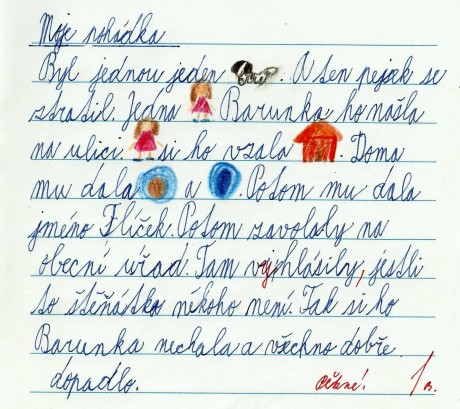 Moje pohádka
Byl jednou jeden . A ten pejsek se
ztratil. Jedna Barunka ho našla
na ulici. si ho vzala . Doma
mu dala a . Potom mu dala
jméno Flíček. Potom zavolaly na
obecní úřad. Tam vyhlásily, jestli
to štěňátko někoho není. Tak si ho
Barunka nechala a všechno dobře
dopadlo.
1